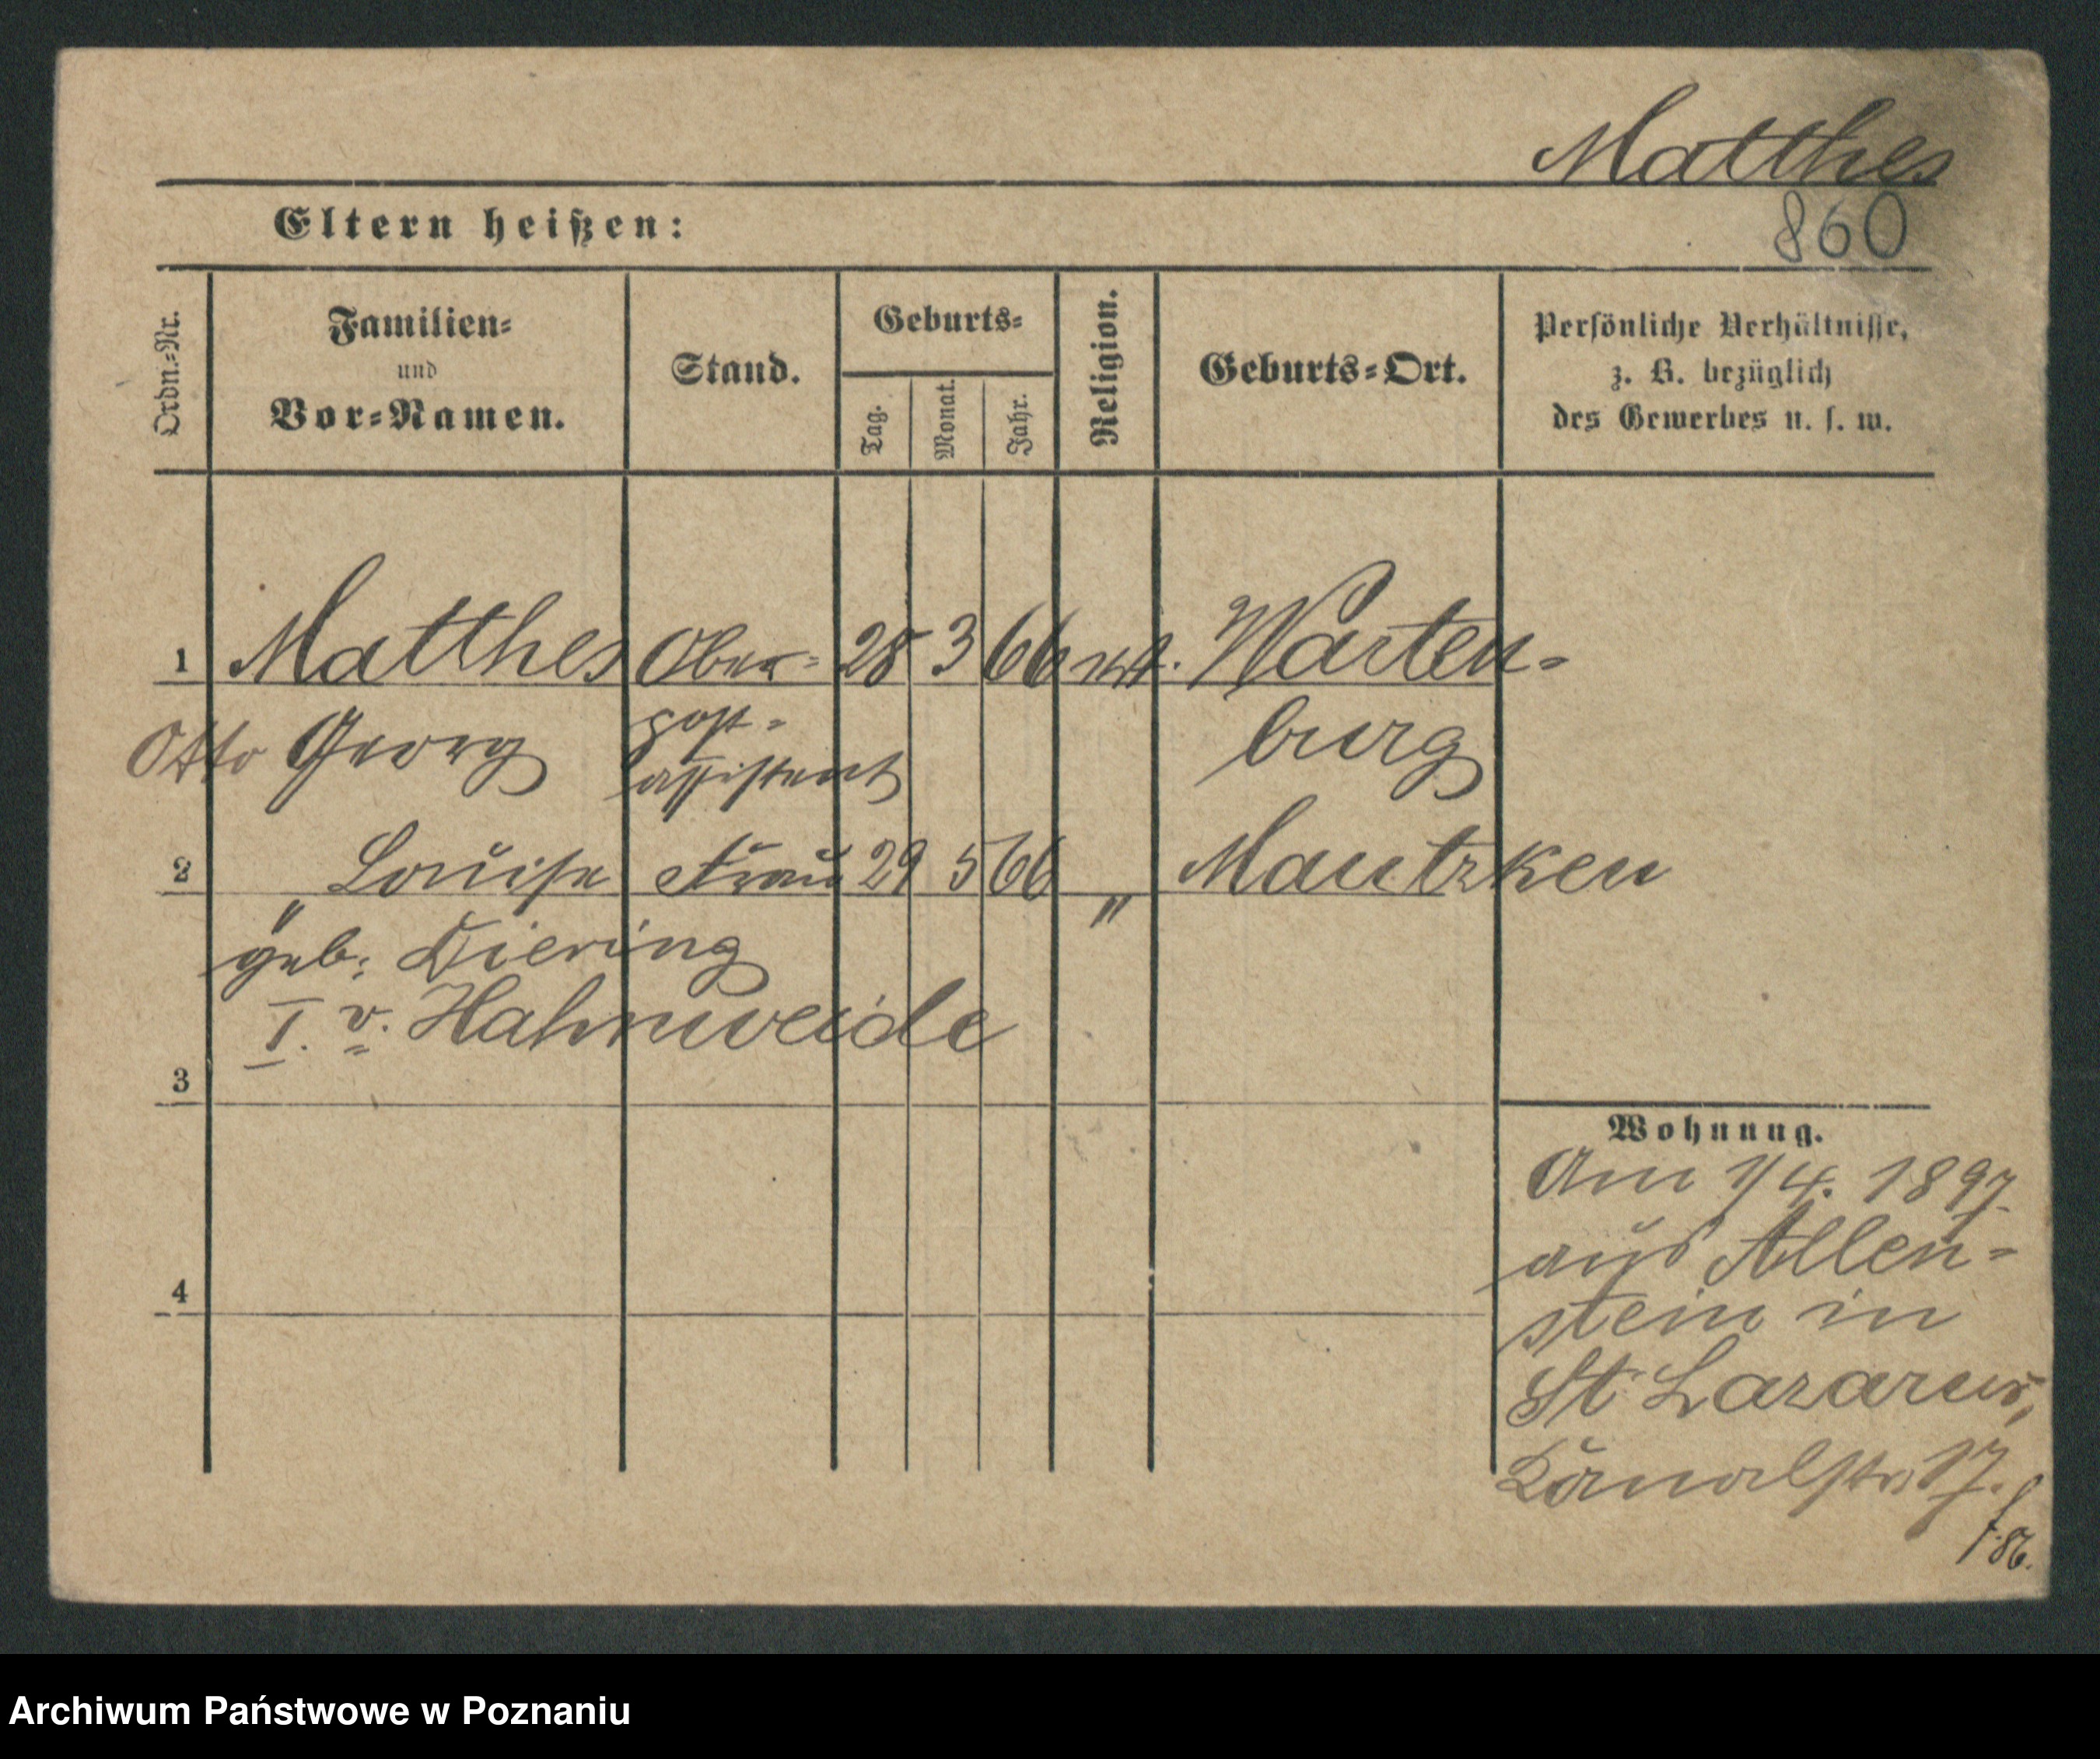 Matthes
860
Eltern heißen:
Ordn.=Nr.
Familien=
und
Vor=Namen.
Stand.
Geburts=
Tag.
Monat.
Jahr.
Religion.
Geburts=Ort.
Persönliche Verhältnisse,
z. B. bezüglich
des Gewerbes u. s. w.
1 Matthes Ober= 28 3 66 Warten=
Otto Georg post= burg
assistent
2 " Louise Frau 29 5 66 " Mautzken
geb: Diering
I. v. Hahnweide
3
4
Wohnung.
Am 1/4. 1897
aus Allen=
stein in
St Lazarus,
Kanalstr. 17.